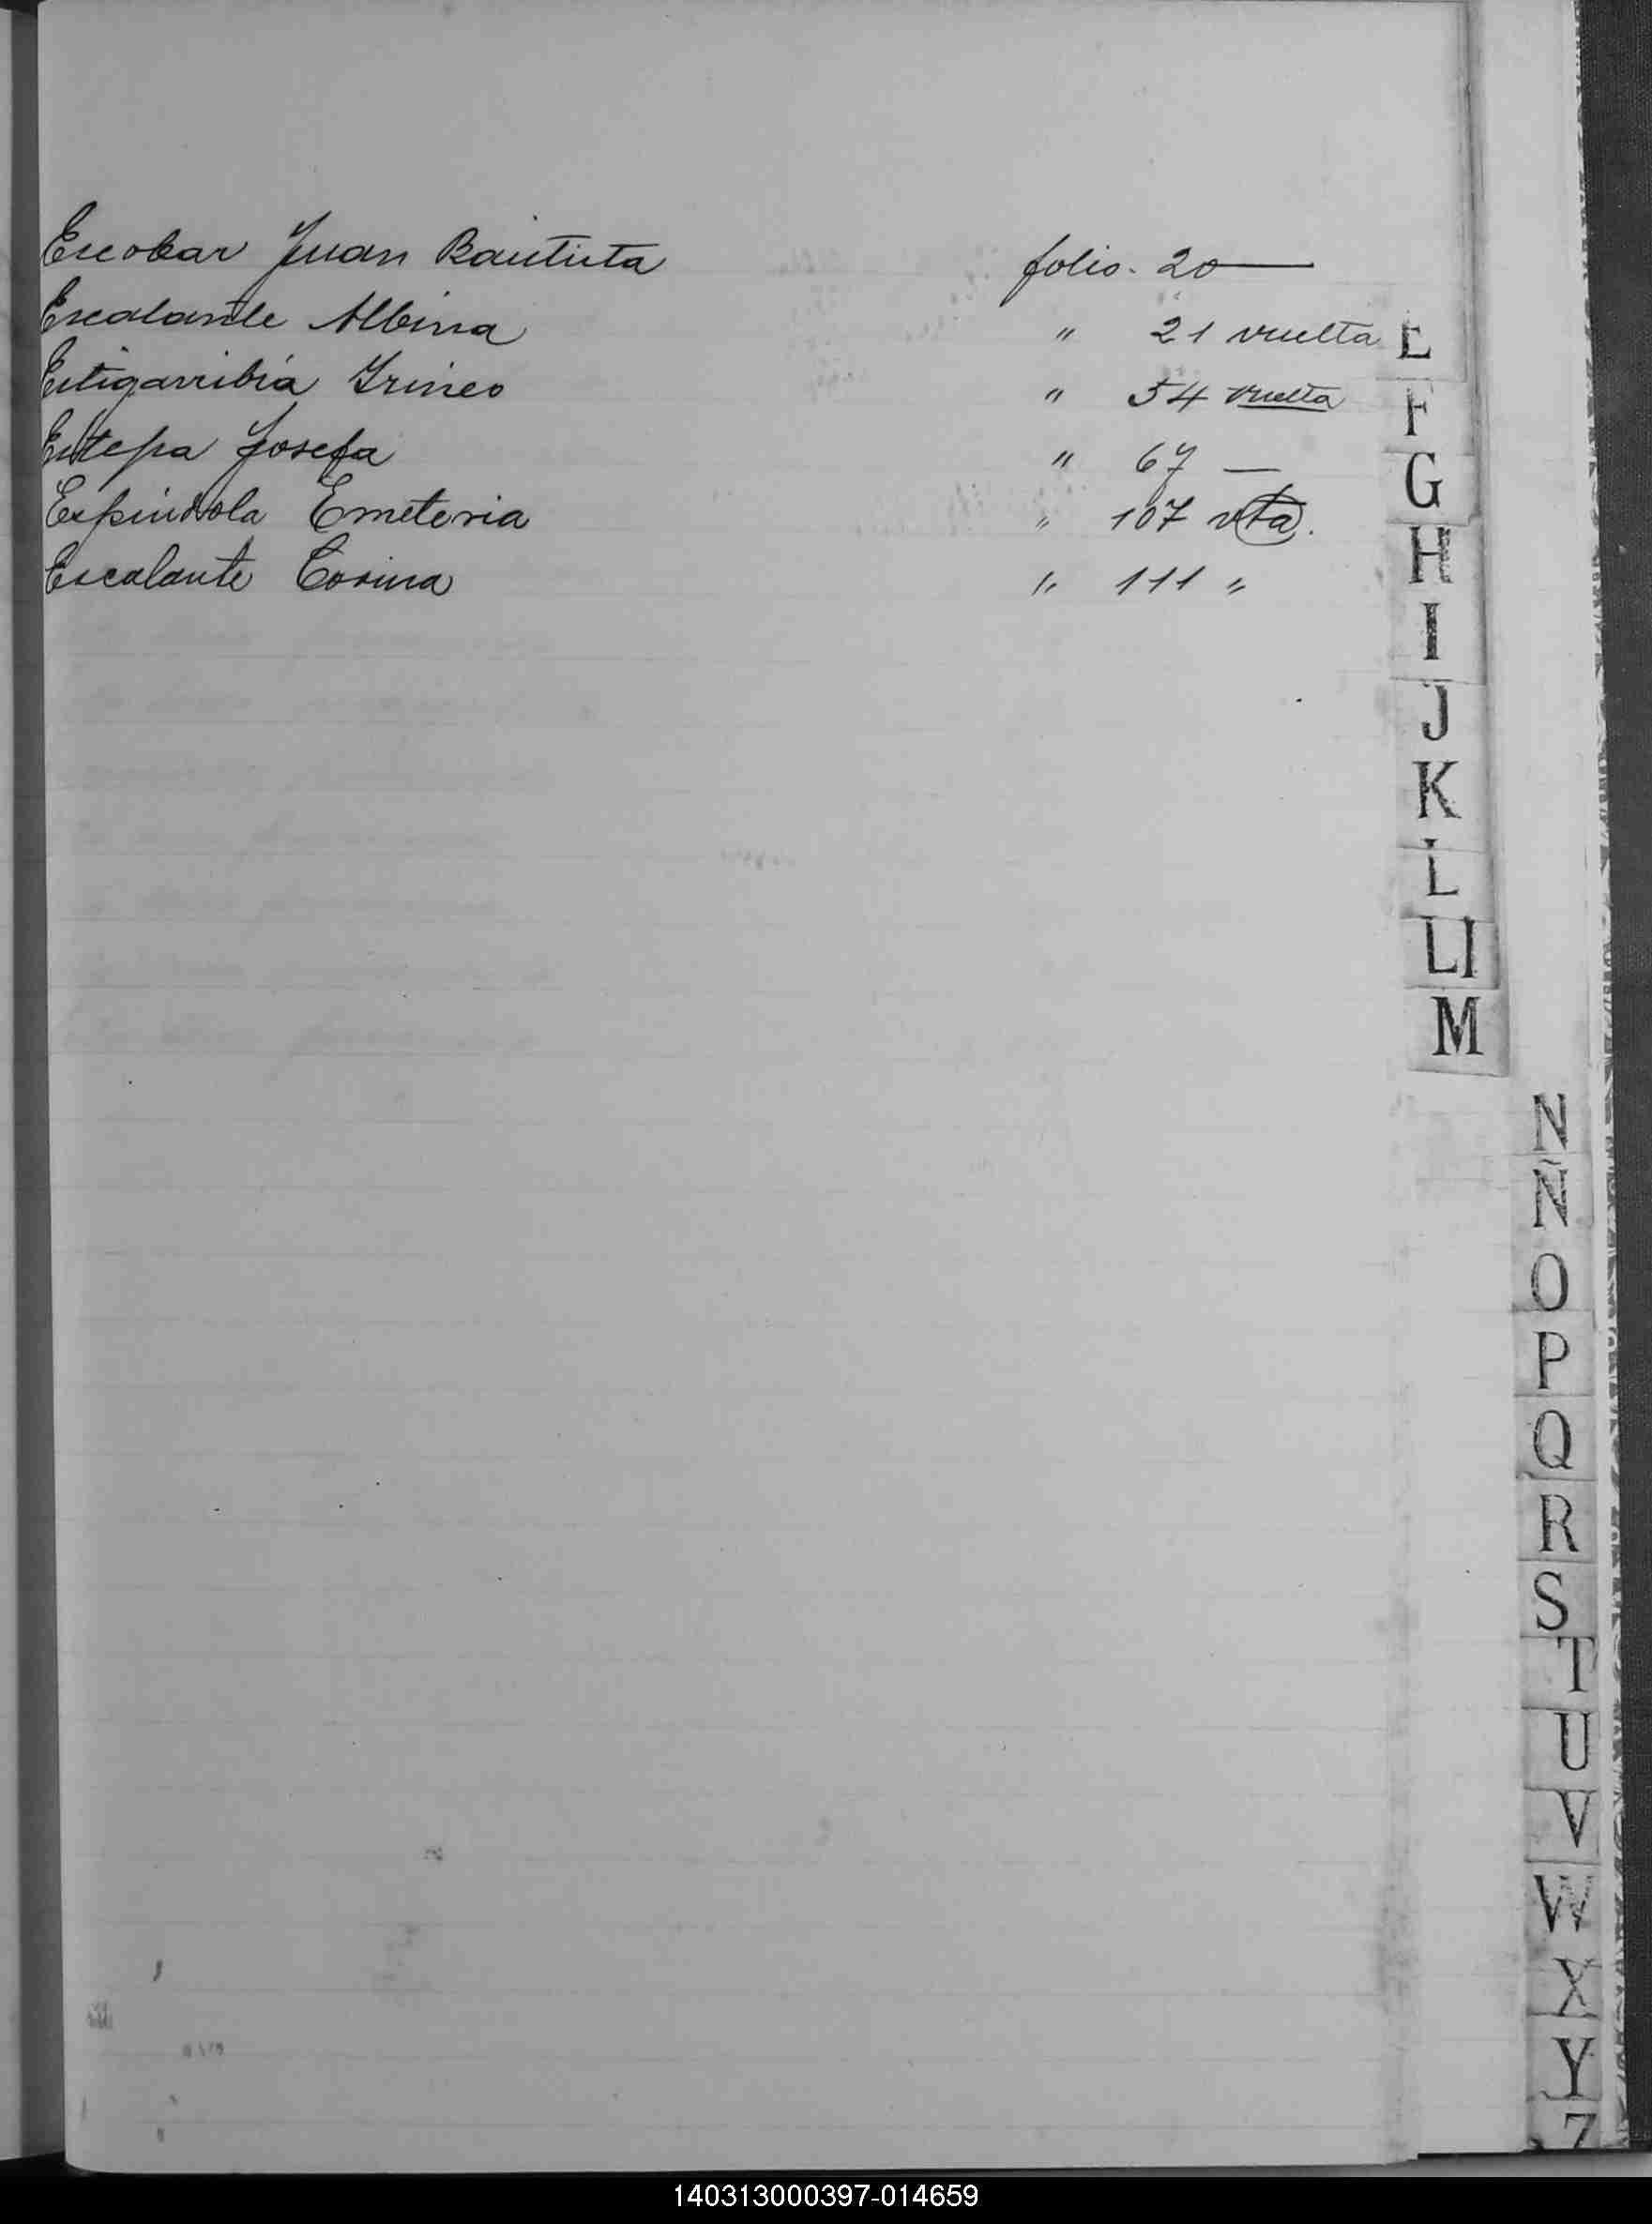 Escobar Juan Bautista folio. 20
Escalante Albina " 21 vuelta
Estigarribia Irineo " 54 vuelta
Estepa Josefa " 67 —
Espíndola Emeteria " 107 vta.
Escalante Corina " 111 "
E
F
G
H
I
J
K
L
Ll
M
N
Ñ
O
P
Q
R
S
T
U
V
W
X
Y
Z
140313000397-014659